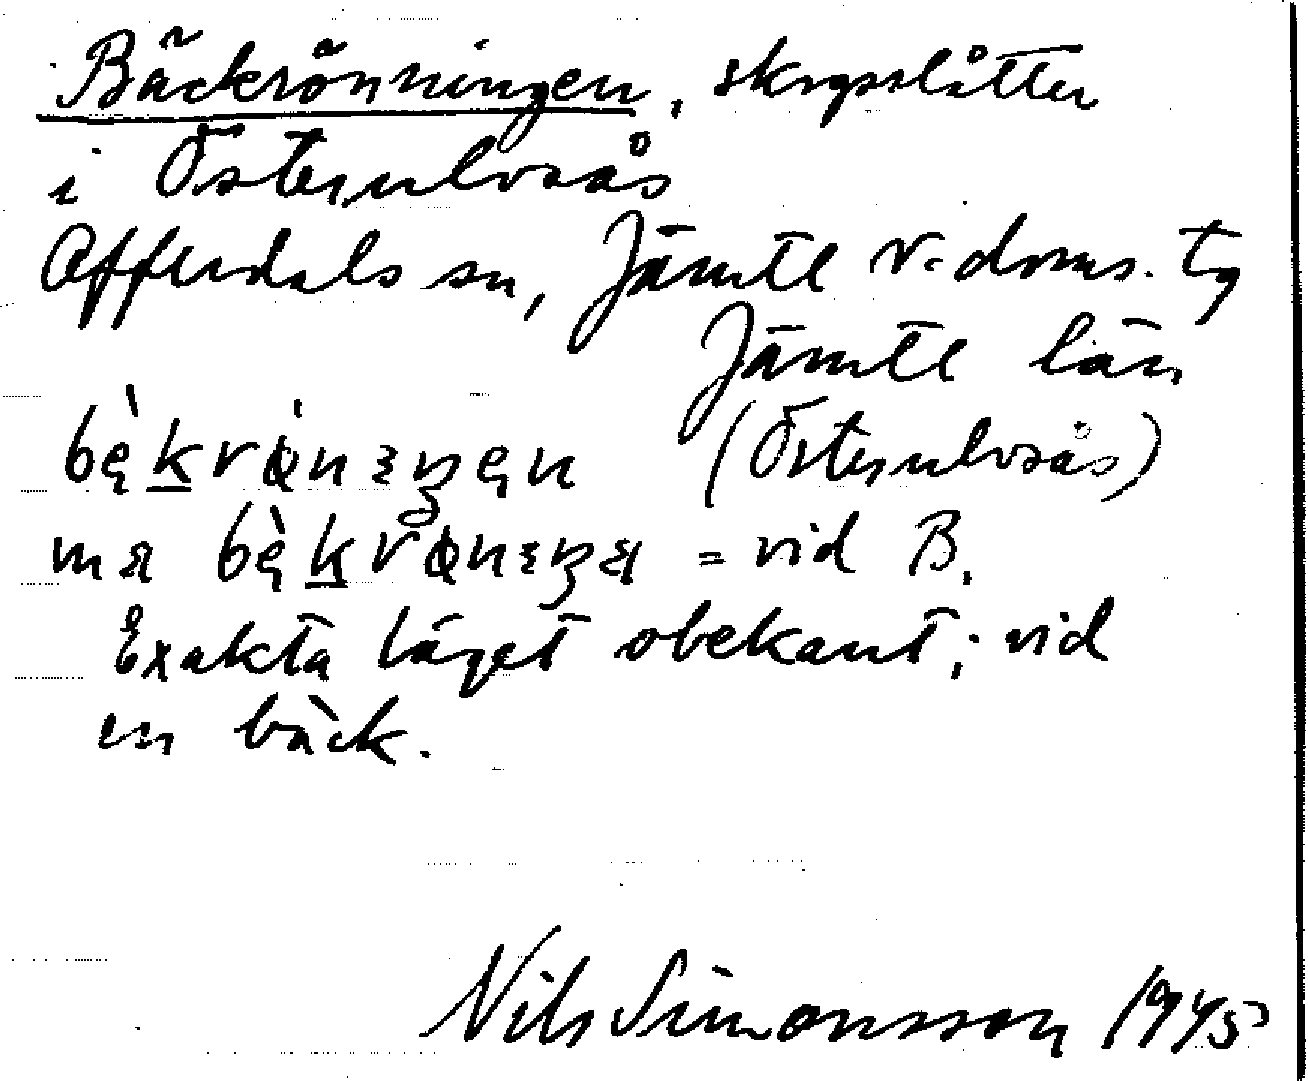 Bäckrönningen, skogsslåtter
i Österulvsås
Offerdals sn, Jämtl v. doms. tg
Jämtl län
bę̀k̲rǿnɛŋęn (Österulvsås)
bę̀k̲rǿnɛŋ = vid B.
Exakta läget obekant; vid
en bäck.
Nils Simonsson 1945